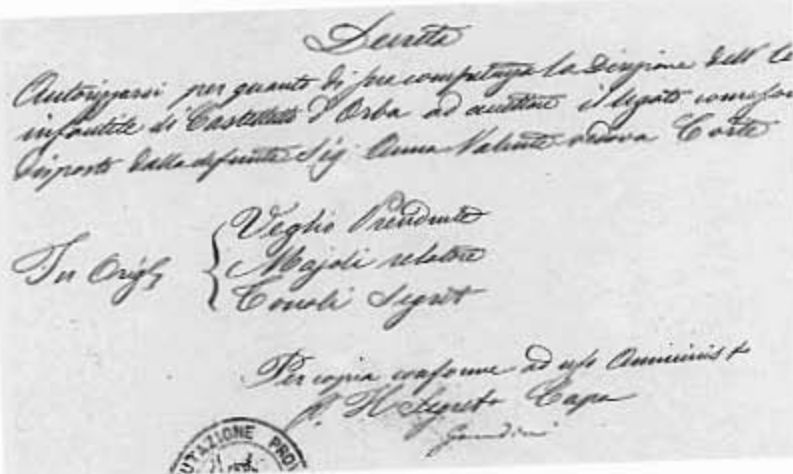 Decreta
Autorizzarsi per quanto di sua competenza la Direzione dell'
infantile di Castelletto d'Orba ad accettare il legato
disposto dalla defunta Sig. Anna Valente vedova Corte
In Orig.
Veglio Presidente
Majoli relatore
Segret
Per copia conforme ad uso Amminist.
Il Segret. Capo
UTAZIONE PRO